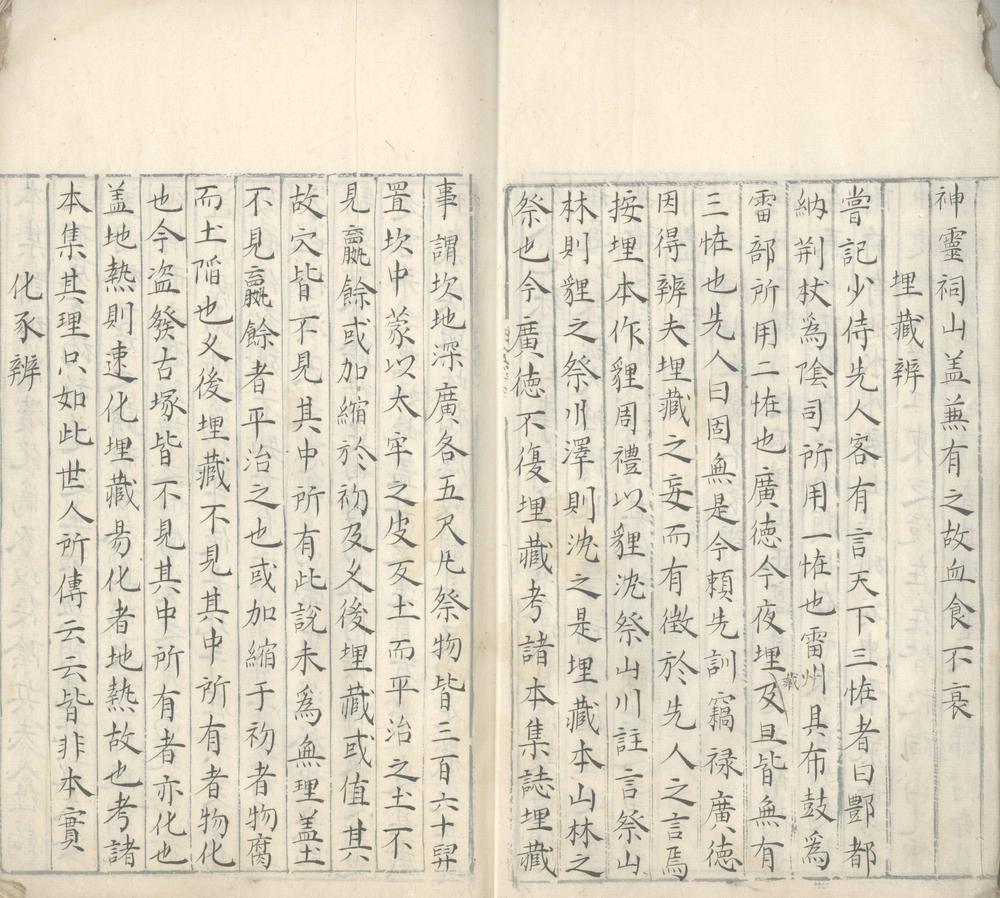 神靈祠山盖兼有之故血食不衰
埋藏辨
嘗記少侍先人客有言天下三恠者曰酆都
納荆杖爲陰司所用一恠也雷州具布鼓爲
雷部所用二恠也廣徳今夜埋藏及旦皆無有
三恠也先人曰固無是今頼先訓竊禄廣徳
因得辨夫埋藏之妄而有徴於先人之言焉
按埋本作貍周禮以貍沈祭山川註言祭山
林則貍之祭川澤則沈之是埋藏本山林之
祭也今廣徳不復埋藏考諸本集誌埋藏
事謂坎地深廣各五尺凡祭物皆三百六十舁
置坎中蒙以太牢之皮反土而平治之土不
見嬴餘或加縮於初及乆後埋藏或值其
故穴皆不見其中所有此說未爲無理盖土
不見嬴餘者平治之也或加縮于初者物腐
而土陷也乆後埋藏不見其中所有者物化
也今盗發古塚皆不見其中所有者亦化也
盖地熱則速化埋藏易化者地熱故也考諸
本集其理只如此世人所傳云云皆非本實
化豕辨